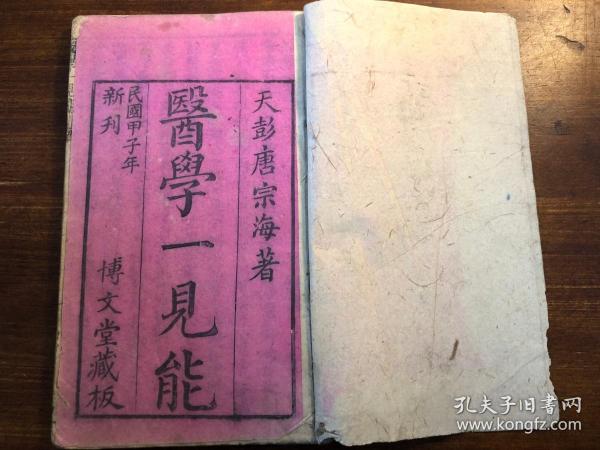 天彭唐宗海著
醫學一見能
民國甲子年
新刊
博文堂藏板
孔夫子旧书网
www.kongfz.com